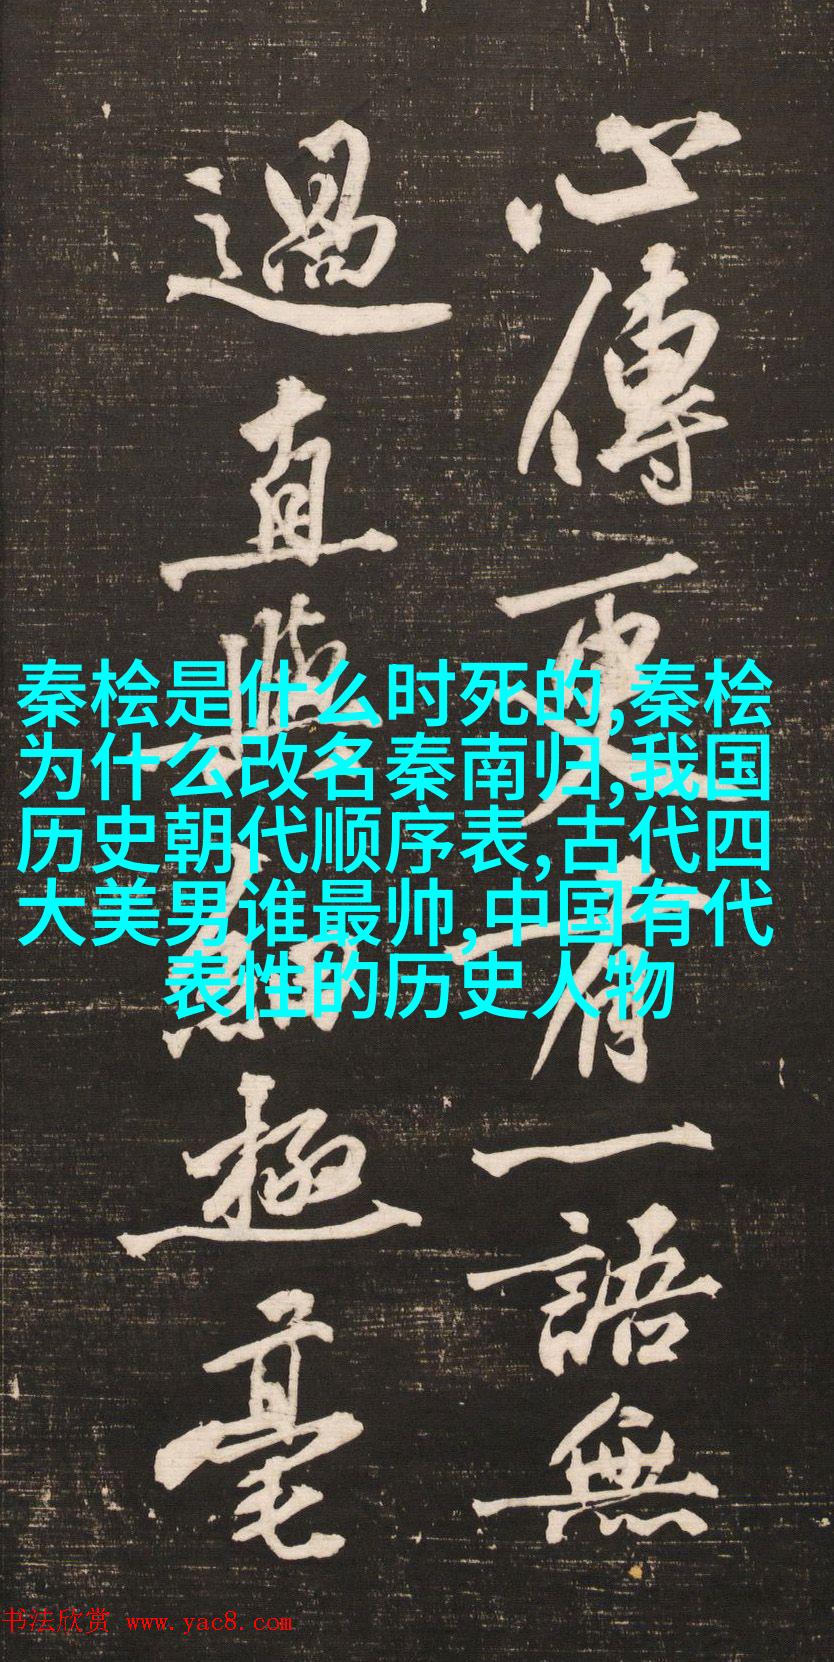 心傳更有一語無
過直與極毫
秦桧是什么时死的,秦桧
为什么改名秦南归,我国
历史朝代顺序表,古代四
大美男谁最帅,中国有代
表性的历史人物
书法欣赏 www.yac8.com